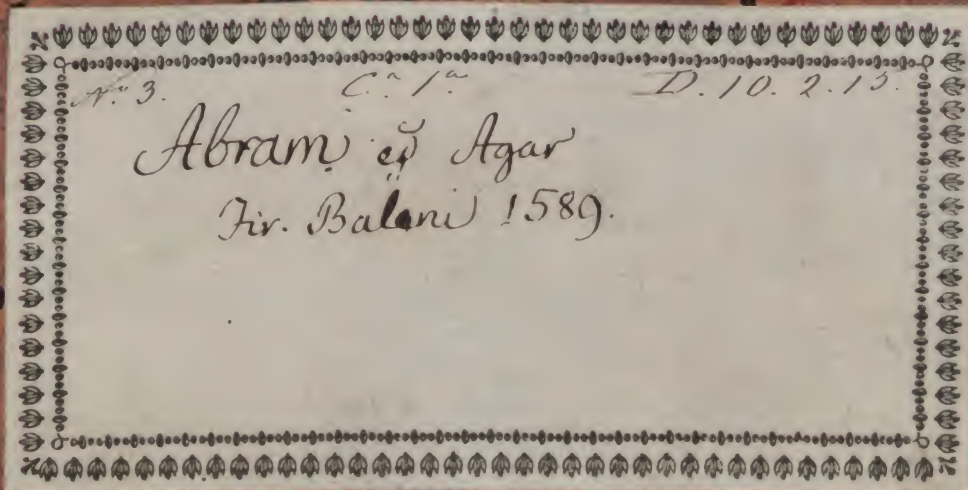 Nº 3. C.ª 1.ª D. 10. 2. 13.
Abram, ed Agar
Fir. Baleni 1589.